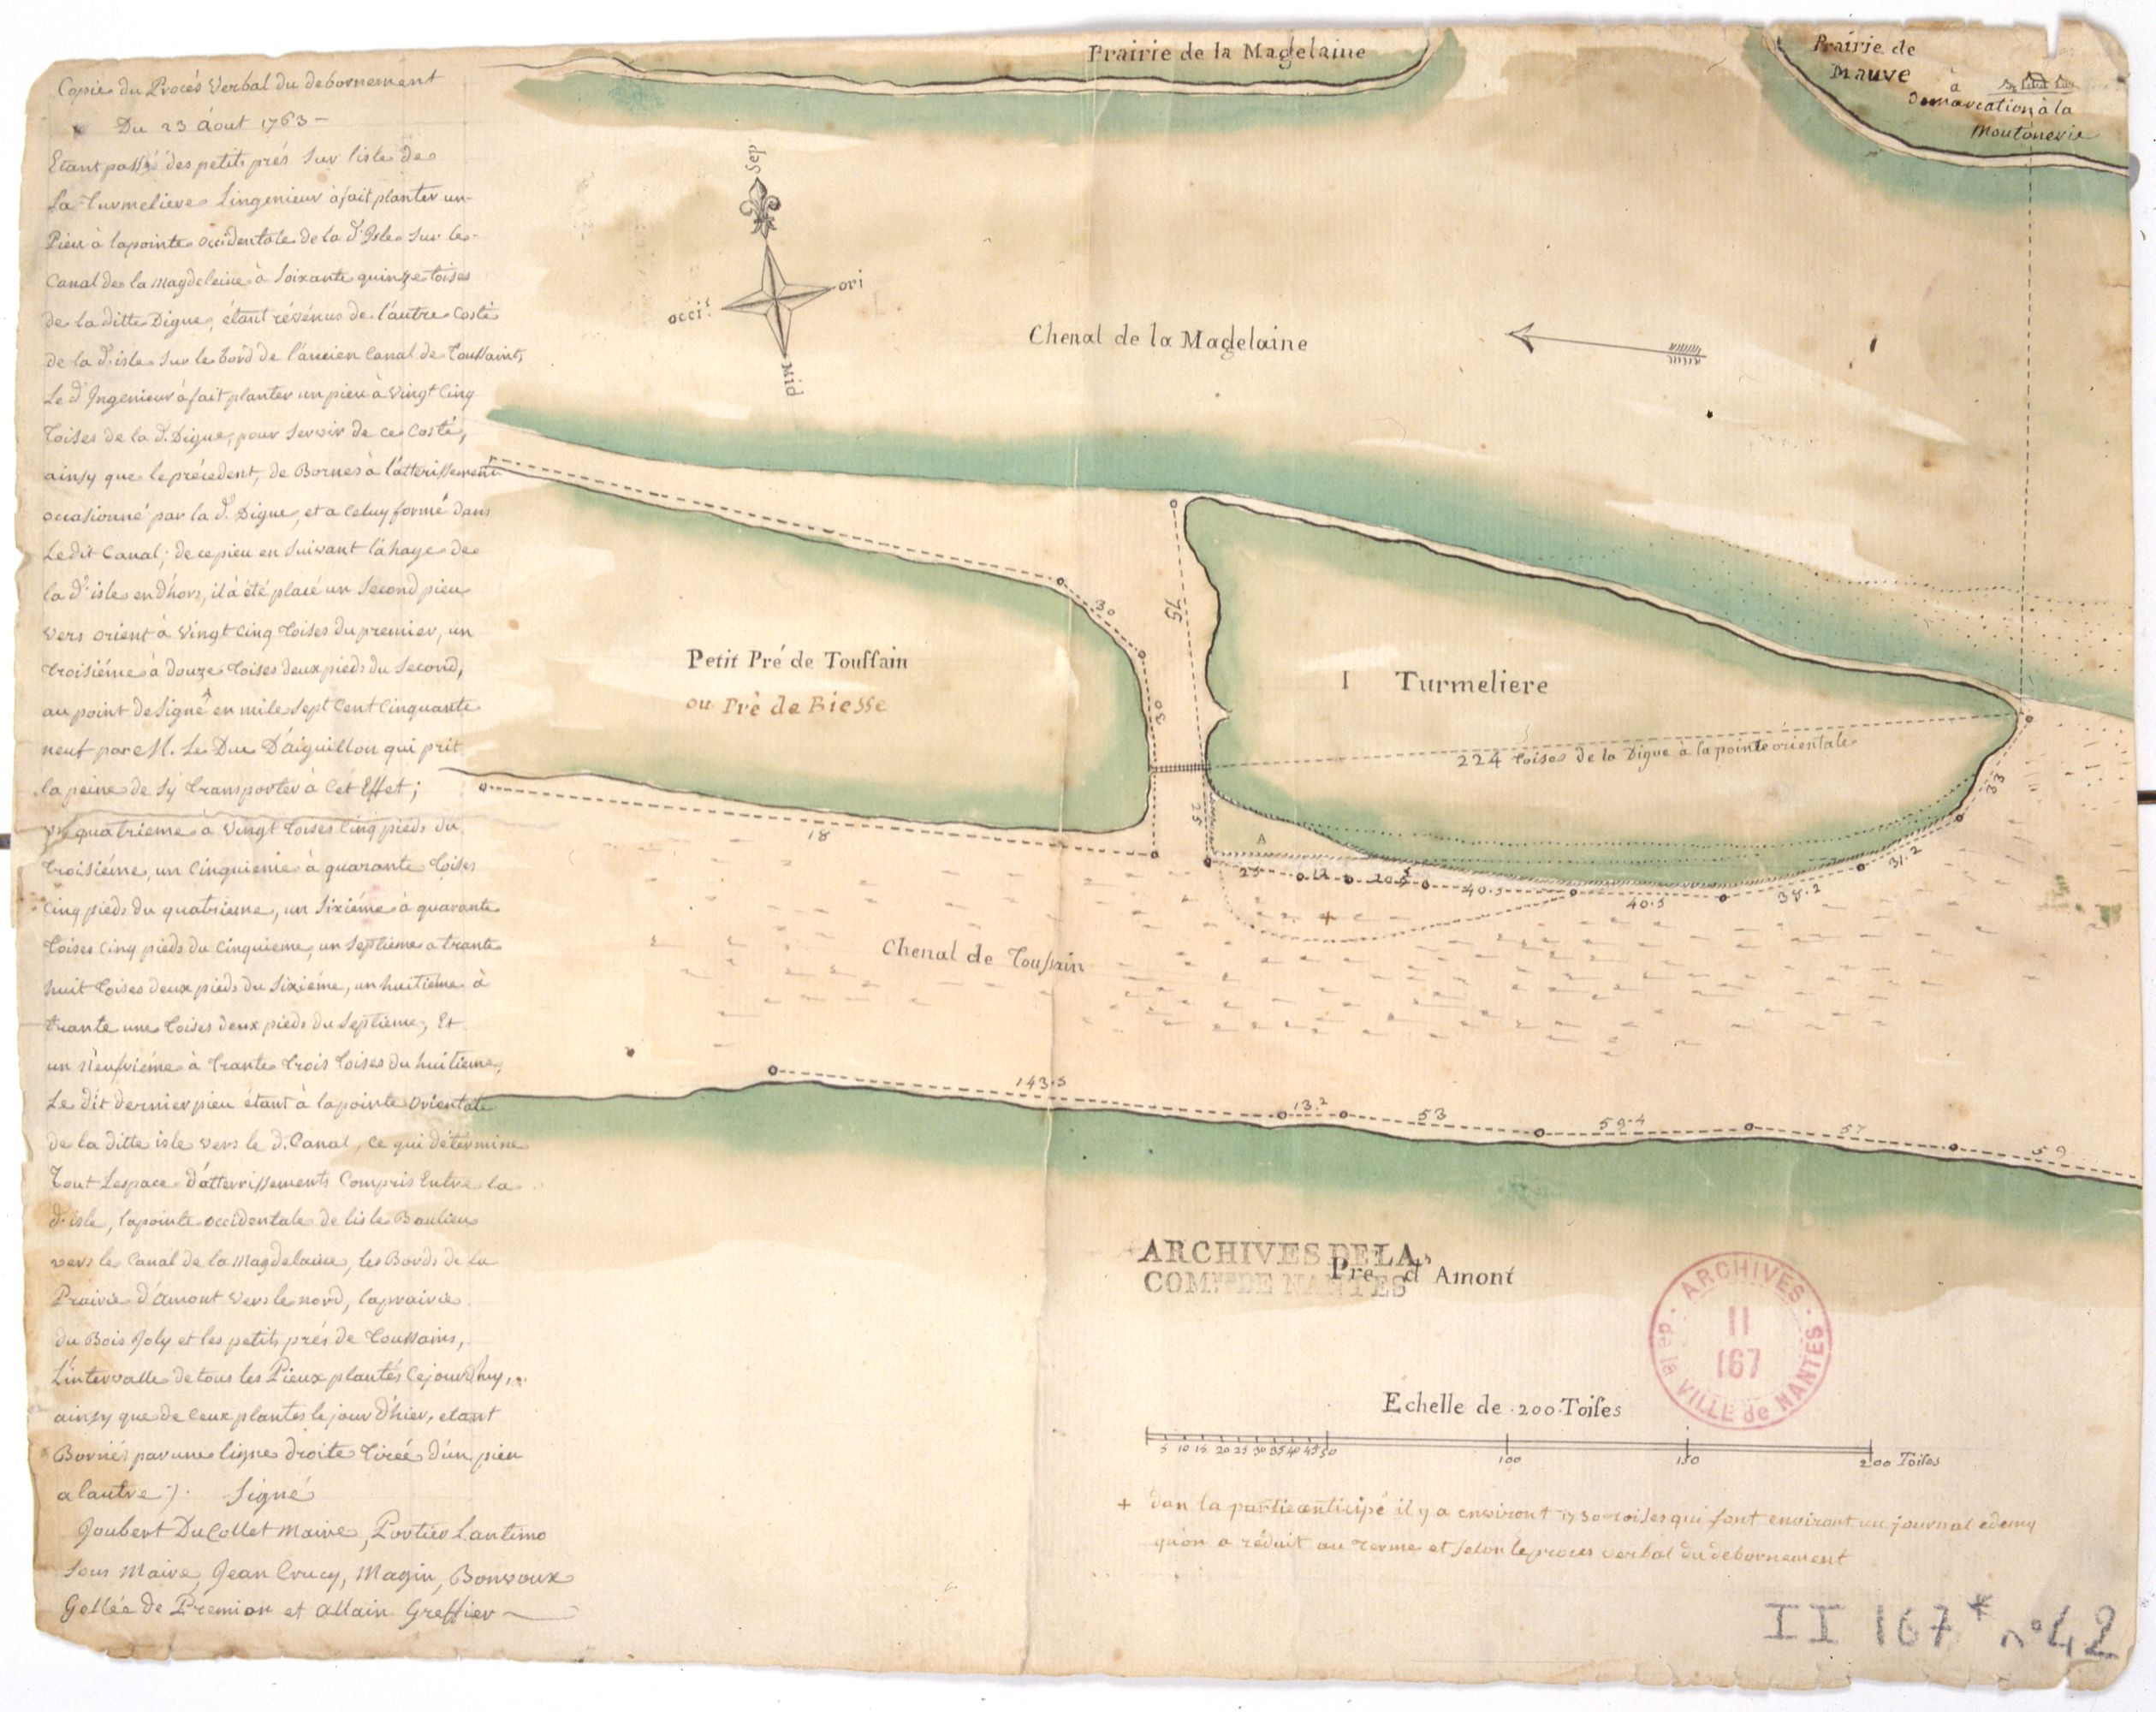 Copie du Procés Verbal du debornement
Du 23 Aout 1763 -
Etant passé des petits prés sur lisle de
La Turmeliere Lingenieur à fait planter un
Pieu à lapointe occidentale de la d. Isle sur le
Canal de la Magdeleine à Soixante quinze toises
de la ditte Digue, étant révénus de l'autre Costé
de la d. isle sur le bord de l'ancien Canal de Toussaint,
Le d. Ingenieur à fait planter un pieu à Vingt Cinq
Toises de la d. Digue, pour servir de ce Costé,
ainsy que le précedent, de Bornes à l'atterissement
occasionné par la d. Digue, et a Celuy formé dans
Ledit Canal; de ce pieu en Suivant la haye de
la d. isle en d'hors, il a été placé un Second pieu
vers orient à Vingt Cinq Toises du premier, un
troisiéme à douze Toises deux pieds du Second,
au point designé A en mile Sept Cent Cinquante
neuf par M. Le Duc D'aiguillon qui prit
la peine de sy transporter à Cét Effet;
un quatrieme à Vingt Toises Cinq pieds du
troisiéme, un Cinquieme à quarante Toises
Cinq pieds du quatrieme, un Sixiéme à quarante
Toises Cinq pieds du Cinquieme, un Septieme a trante
huit Toises deux pieds du Sixiéme, un huitieme à
trante une Toises deux pieds du Septieme, Et
un Neufviéme à trante trois Toises du huitieme,
Le dit dernier pieu étant à lapointe Orientale
de la ditte isle vers le d. Canal, Ce qui détermine
Tout Lespace d'atterrissements Compris Entre la
d. isle, lapointe occidentale de lisle Baulieu
vers le Canal de la Magdelaine, les Bords de la
Prairie d'amont vers le nord, laprairie
du Bois Joly et les petits prés de Toussains,
L'intervalle de tous les Pieux plantés Cejourdhuy,
ainsy que de Ceux plantés le jour d'hier, etant
Bornés par une ligne droite tirée d'un pieu
a lautre). Signé
Joubert Du Collet Maire, Portier Lantimo
Sous Maire, Jean Crucy, Magin, Bonvoux
Gellée de Prémion et Allain Greffier
Prairie de la Magdelaine
Prairie de
Mauve
à
Demarcation à la
Moutonerie
Sep
ori
occi.t
Midi
Chenal de la Magdelaine
Petit Pré de Toussain
ou Pré de Biesse
I Turmeliere
224 Toises de la Digue à la pointe orientale
30
30
75
25
18
A
25
12
20.5
40.5
40.5
38.2
31.2
33
+
Chenal de Toussain
143.5
13.2
53
59.4
57
59
ARCHIVES DE LA
COM.NE DE NANTES
Pre d'Amont
ARCHIVES
II
167
de la VILLE de NANTES
Echelle de 200 Toises
5 10 15 20 25 30 35 40 45 50 100 150 200 Toises
+ dan la partie anticipé il y a environt 1730 toises qui font environt un journal edemy
quon a réduit au terme et selon le proces verbal du debornement
II 167* n° 42